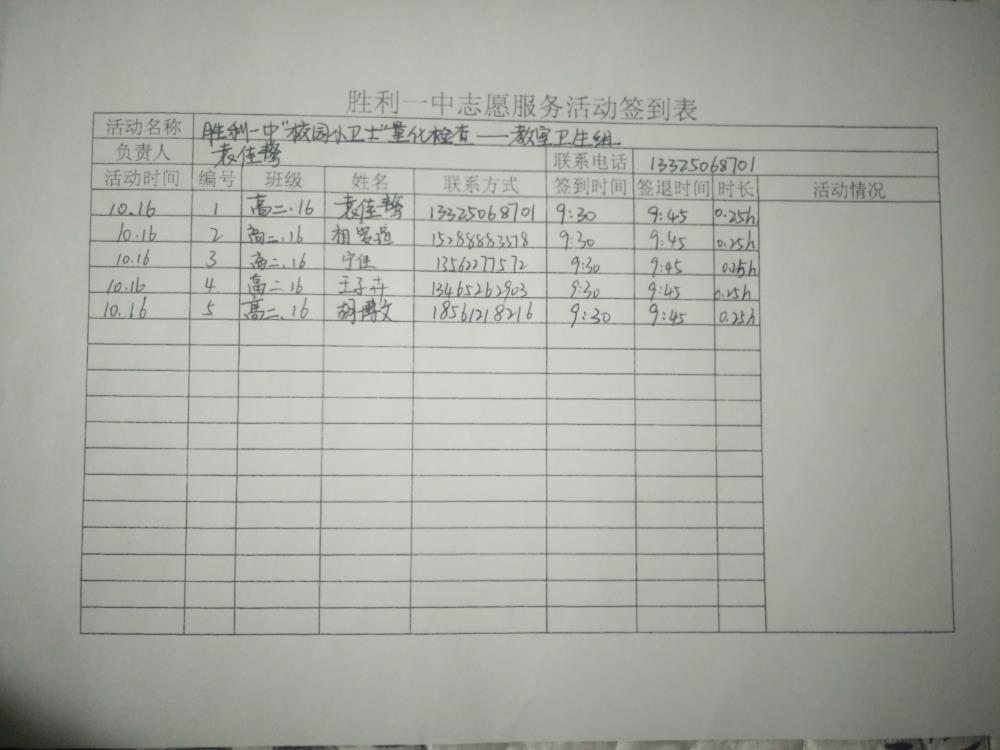 胜利一中志愿服务活动签到表
活动名称 胜利一中"校园小卫士"量化检查——教室卫生组
负责人 袁佳 联系电话 13325068701
活动时间 编号 班级 姓名 联系方式 签到时间 签退时间 时长 活动情况
10.16 1 高二.16 袁佳 13325068701 9:30 9:45 0.25h
10.16 2 高二.16 相 15288883518 9:30 9:45 0.25h
10.16 3 高二.16 宁佳 13562277572 9:30 9:45 0.25h
10.16 4 高二.16 王子卉 13465262903 9:30 9:45 0.25h
10.16 5 高二.16 胡博文 18561218216 9:30 9:45 0.25h